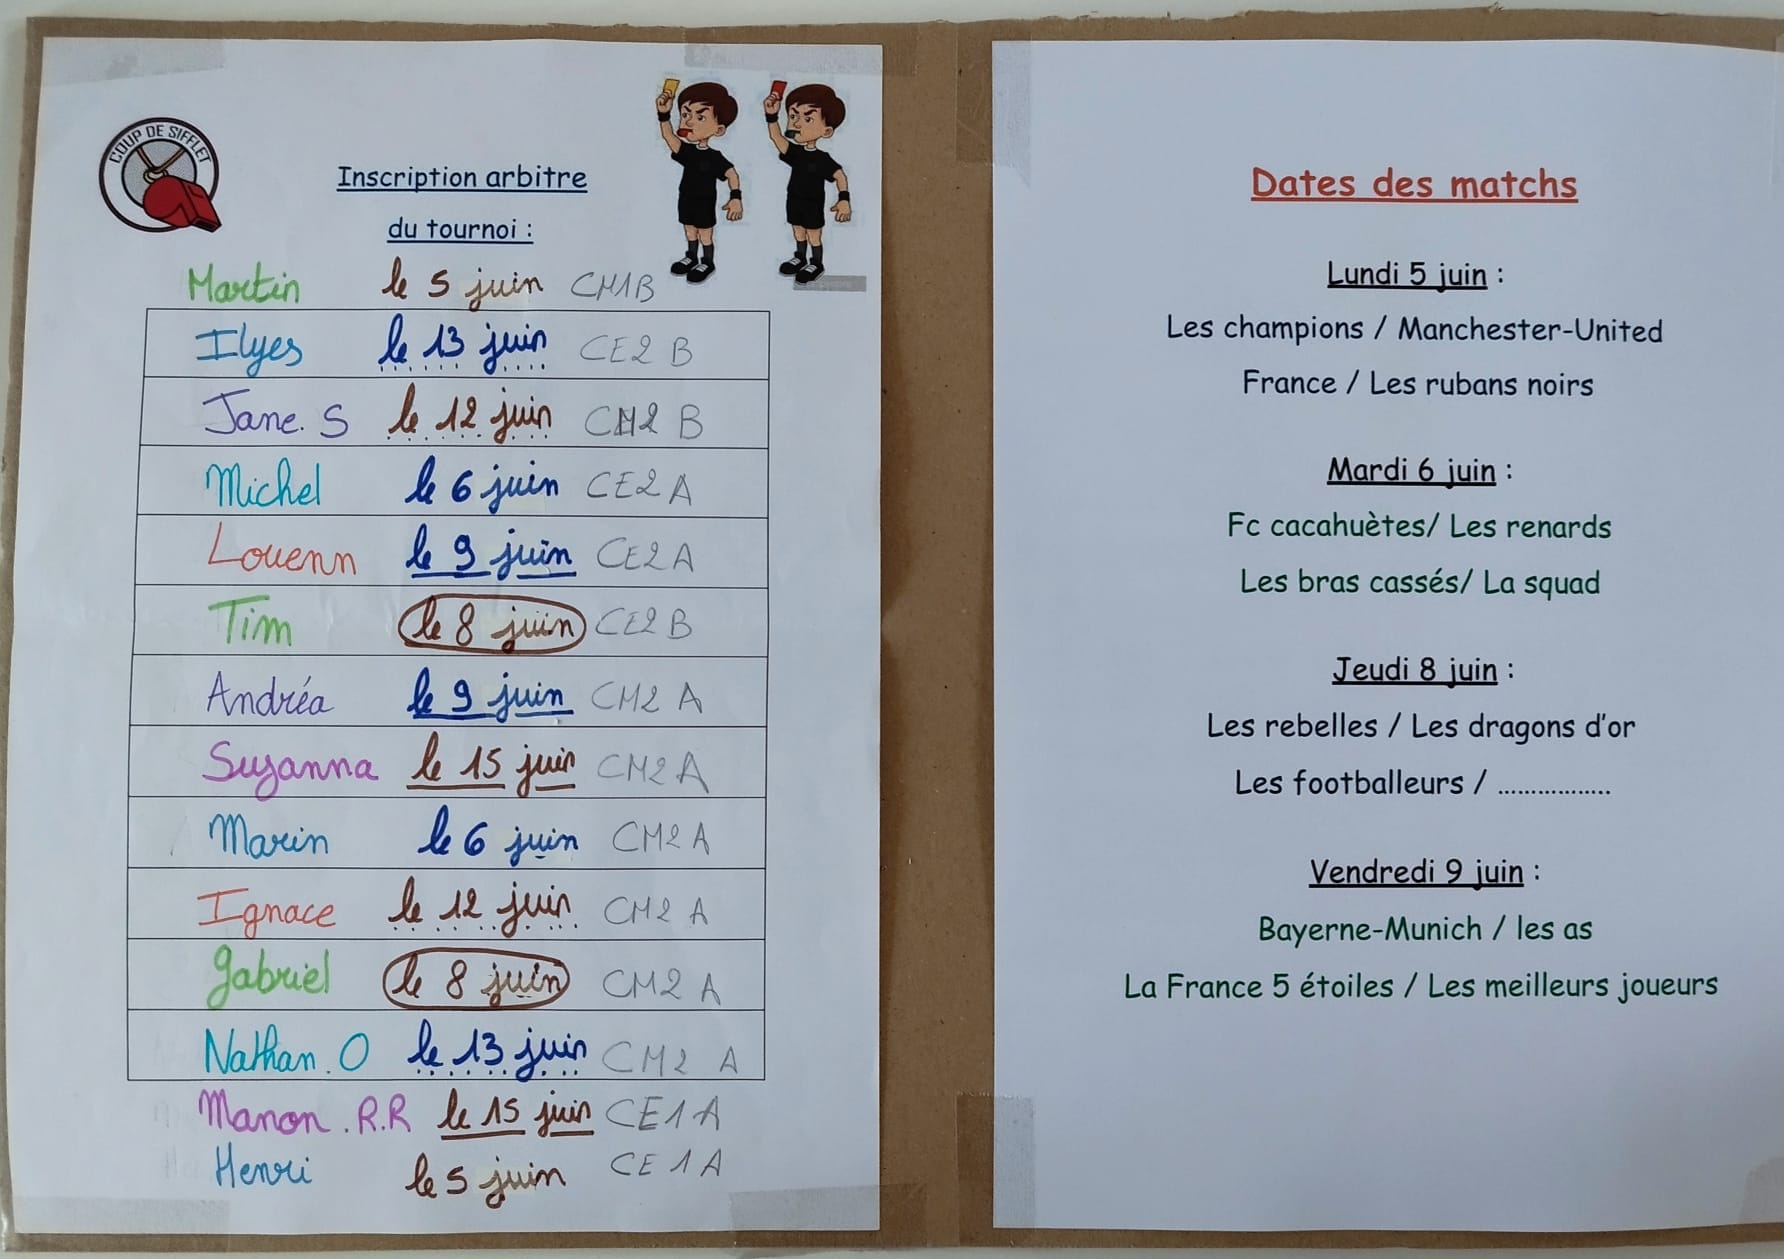 COUP DE SIFFLET
Inscription arbitre
du tournoi :
Martin le 5 juin CM1B
Ilyes le 13 juin CE2 B
Jane. S le 12 juin CM2 B
Michel le 6 juin CE2 A
Louenn le 9 juin CE2 A
Tim le 8 juin CE2 B
Andréa le 9 juin CM2 A
Suzanna le 15 juin CM2 A
Marin le 6 juin CM2 A
Ignace le 12 juin CM2 A
Gabriel le 8 juin CM2 A
Nathan. O le 13 juin CM2 A
Manon. R.R le 15 juin CE1 A
Henri le 5 juin CE1 A
Dates des matchs
Lundi 5 juin :
Les champions / Manchester-United
France / Les rubans noirs
Mardi 6 juin :
Fc cacahuètes/ Les renards
Les bras cassés/ La squad
Jeudi 8 juin :
Les rebelles / Les dragons d'or
Les footballeurs / .................
Vendredi 9 juin :
Bayerne-Munich / les as
La France 5 étoiles / Les meilleurs joueurs